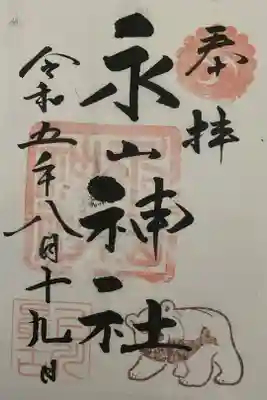 奉拝
永山神社
令和五年八月十九日